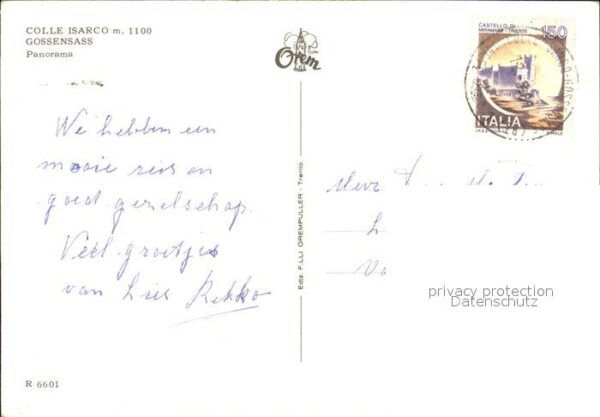 COLLE ISARCO m. 1100
GOSSENSASS
Panorama
Orem
CASTELLO DI
MIRAMARE - TRIESTE
150
ITALIA
We hebben een
mooie reis en
goed gezelschap.
Veel groetjes
van Lies Rekko
Ediz. F.LLI OREMPULLER - Trento
Mevr
privacy protection
Datenschutz
R 6601